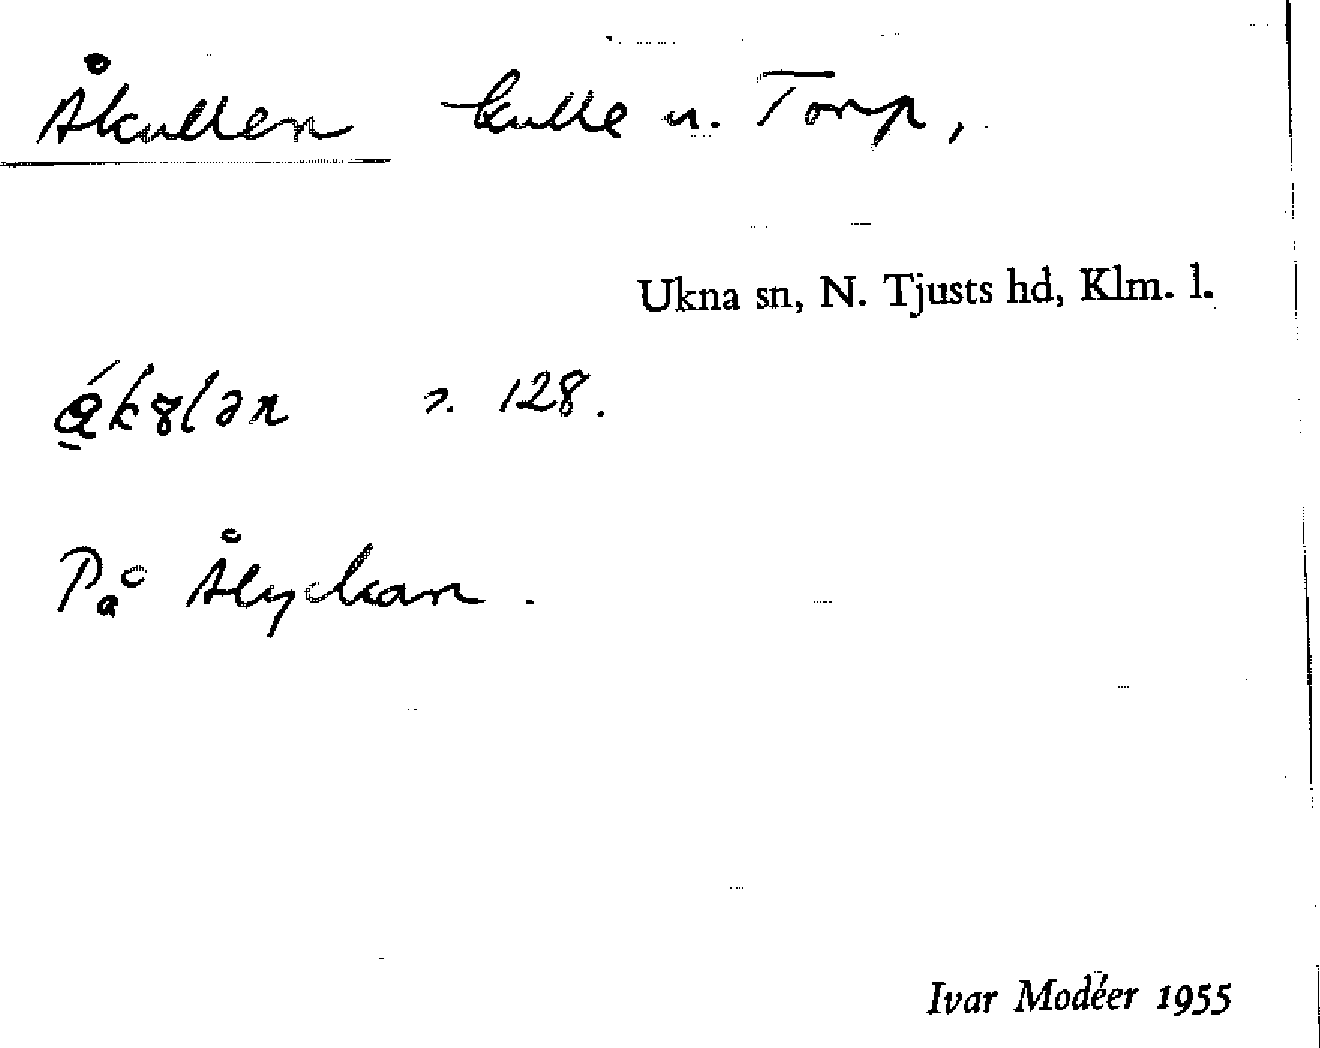 Åkullen kulle u. Torp,
Ukna sn, N. Tjusts hd, Klm. l.
128.
På Ålyckan.
Ivar Modéer 1955